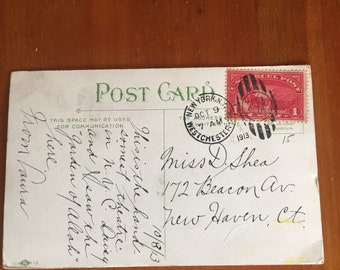 POST CARD
THIS SPACE MAY BE USED
FOR COMMUNICATION
10/8/13
This is the hand-
somest theatre
in n. y. C. Daisy
and I saw the
"Garden of Allah"
here
from Paula
NEW YORK, N.Y.
OCT 9
7 AM
1913
WESTCHESTER
PARCEL POST
1
15
Miss D. Shea
172 Beacon Av.
New Haven, Ct.